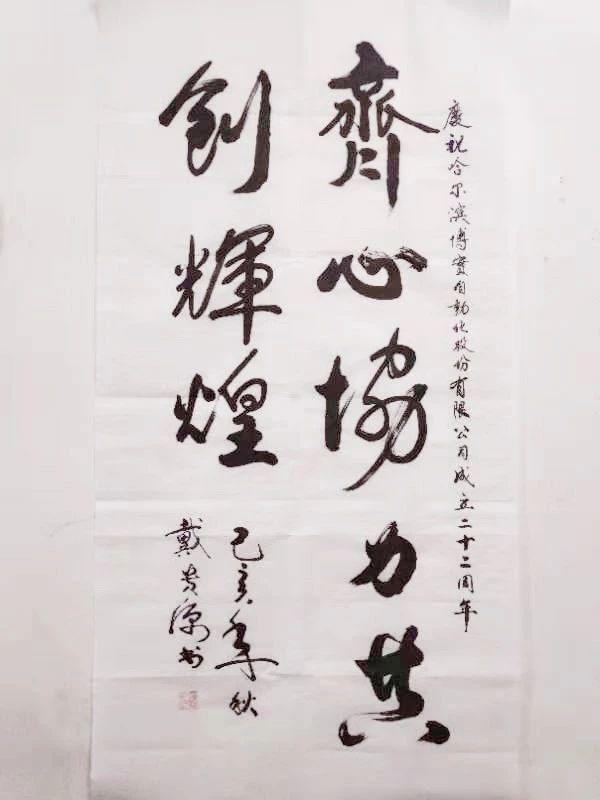 慶祝哈尔濱博實自動化股份有限公司成立二十二周年
齊心協力共
創輝煌
己亥年秋
戴贵源书